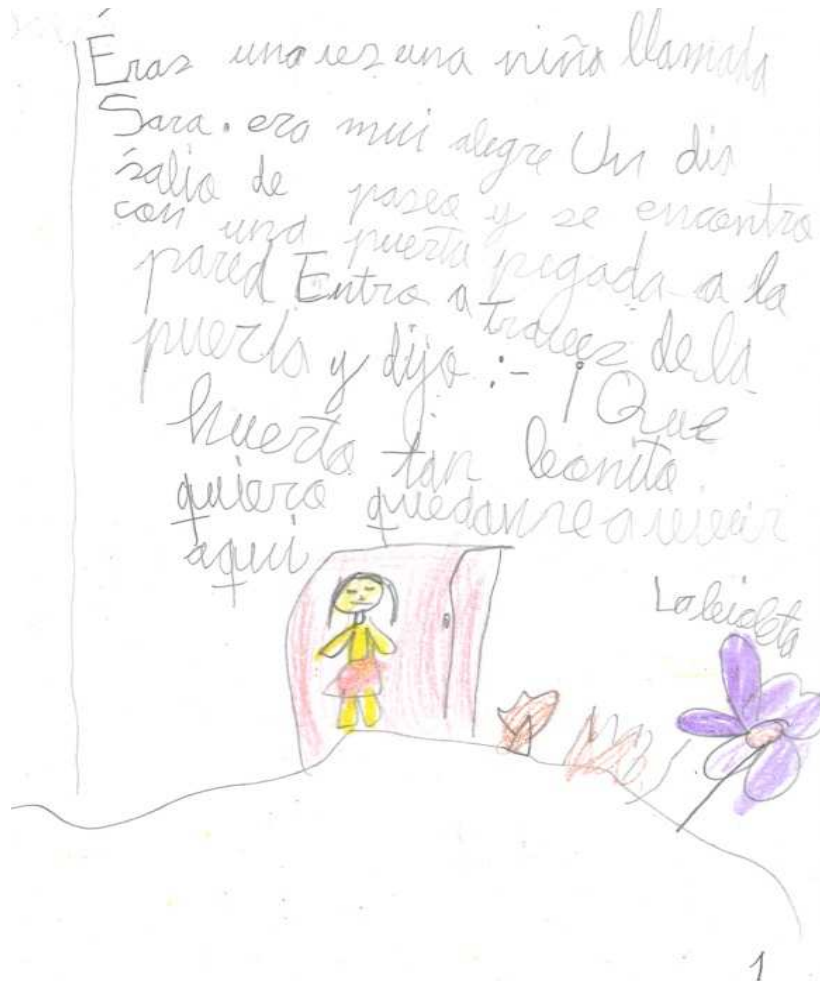 Éras una vez una niña llamada
Sara. era mui alegre Un dia
salio de paseo y se encontro
con una puerta pegada a la
pared Entro a travez de la
puerta y dijo :- ¡Que
huerto tan bonito
quiero quedarme a vivir
aqui
La bioleta
1